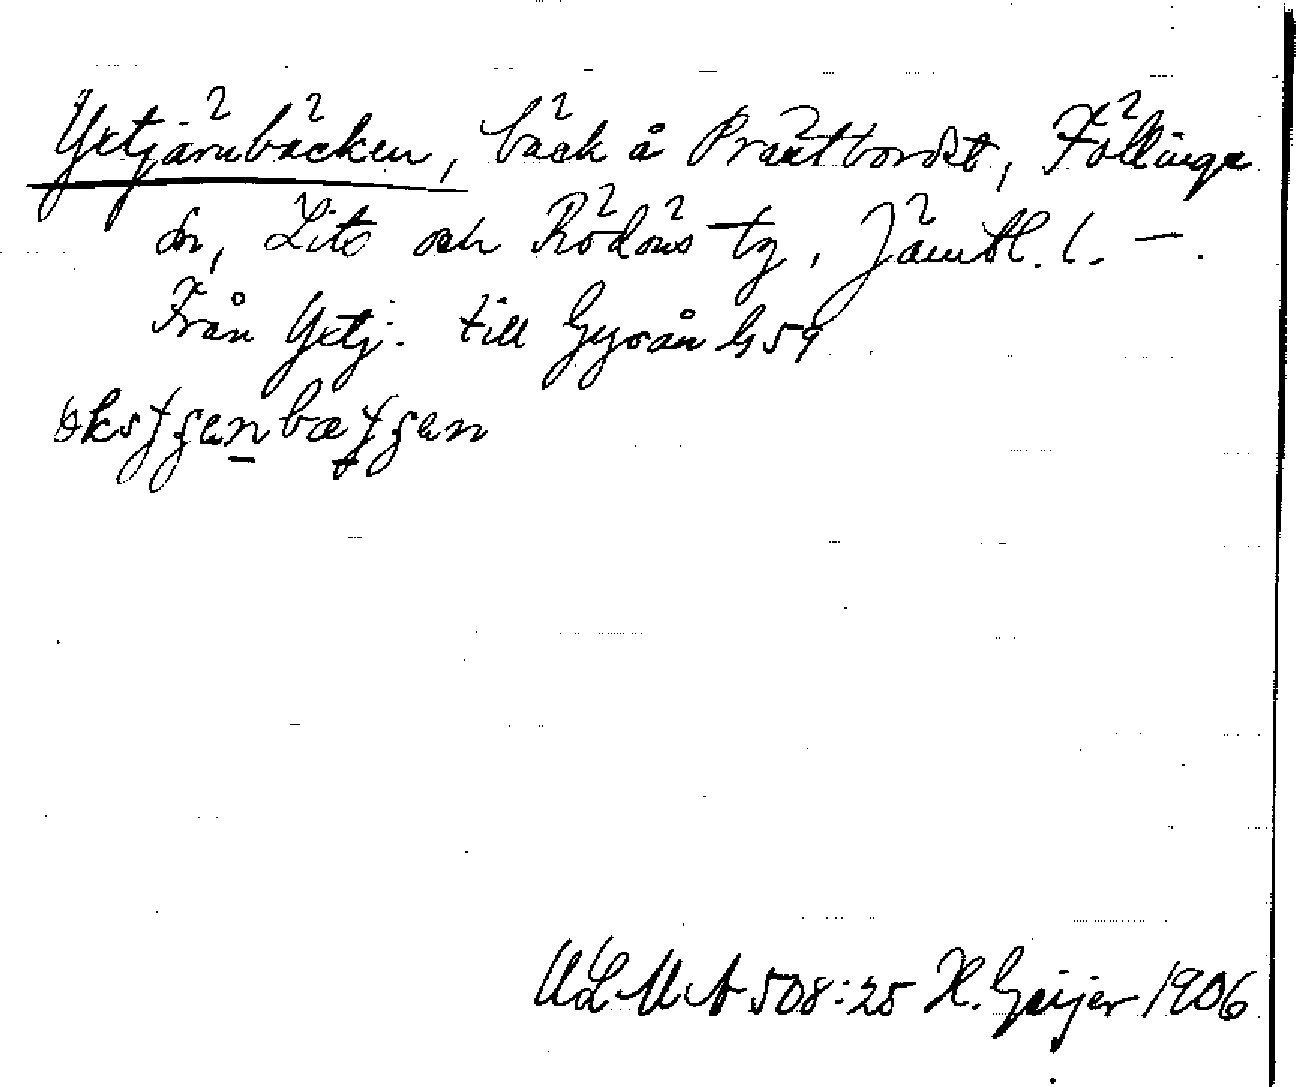 Yxtjärnbäcken, bäck å Prästbordet, Föllinge
sn, Lits och Rödöns tg, Jämtl. l. —.
Från Yxtj. till Gysån G59
ULMA 508:25 H. Geijer 1906